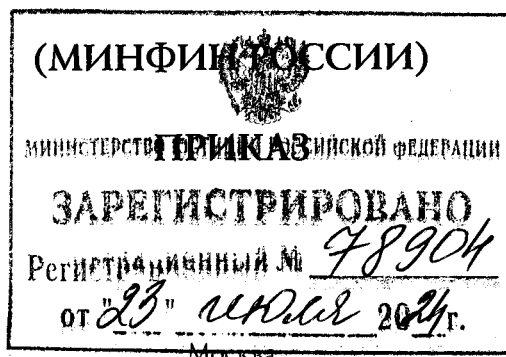 (МИНФИН РОССИИ)
ПРИКАЗ
МИНИСТЕРСТВО ЮСТИЦИИ РОССИЙСКОЙ ФЕДЕРАЦИИ
ЗАРЕГИСТРИРОВАНО
Регистрационный № 78904
от "23" июля 2024 г.
Москва